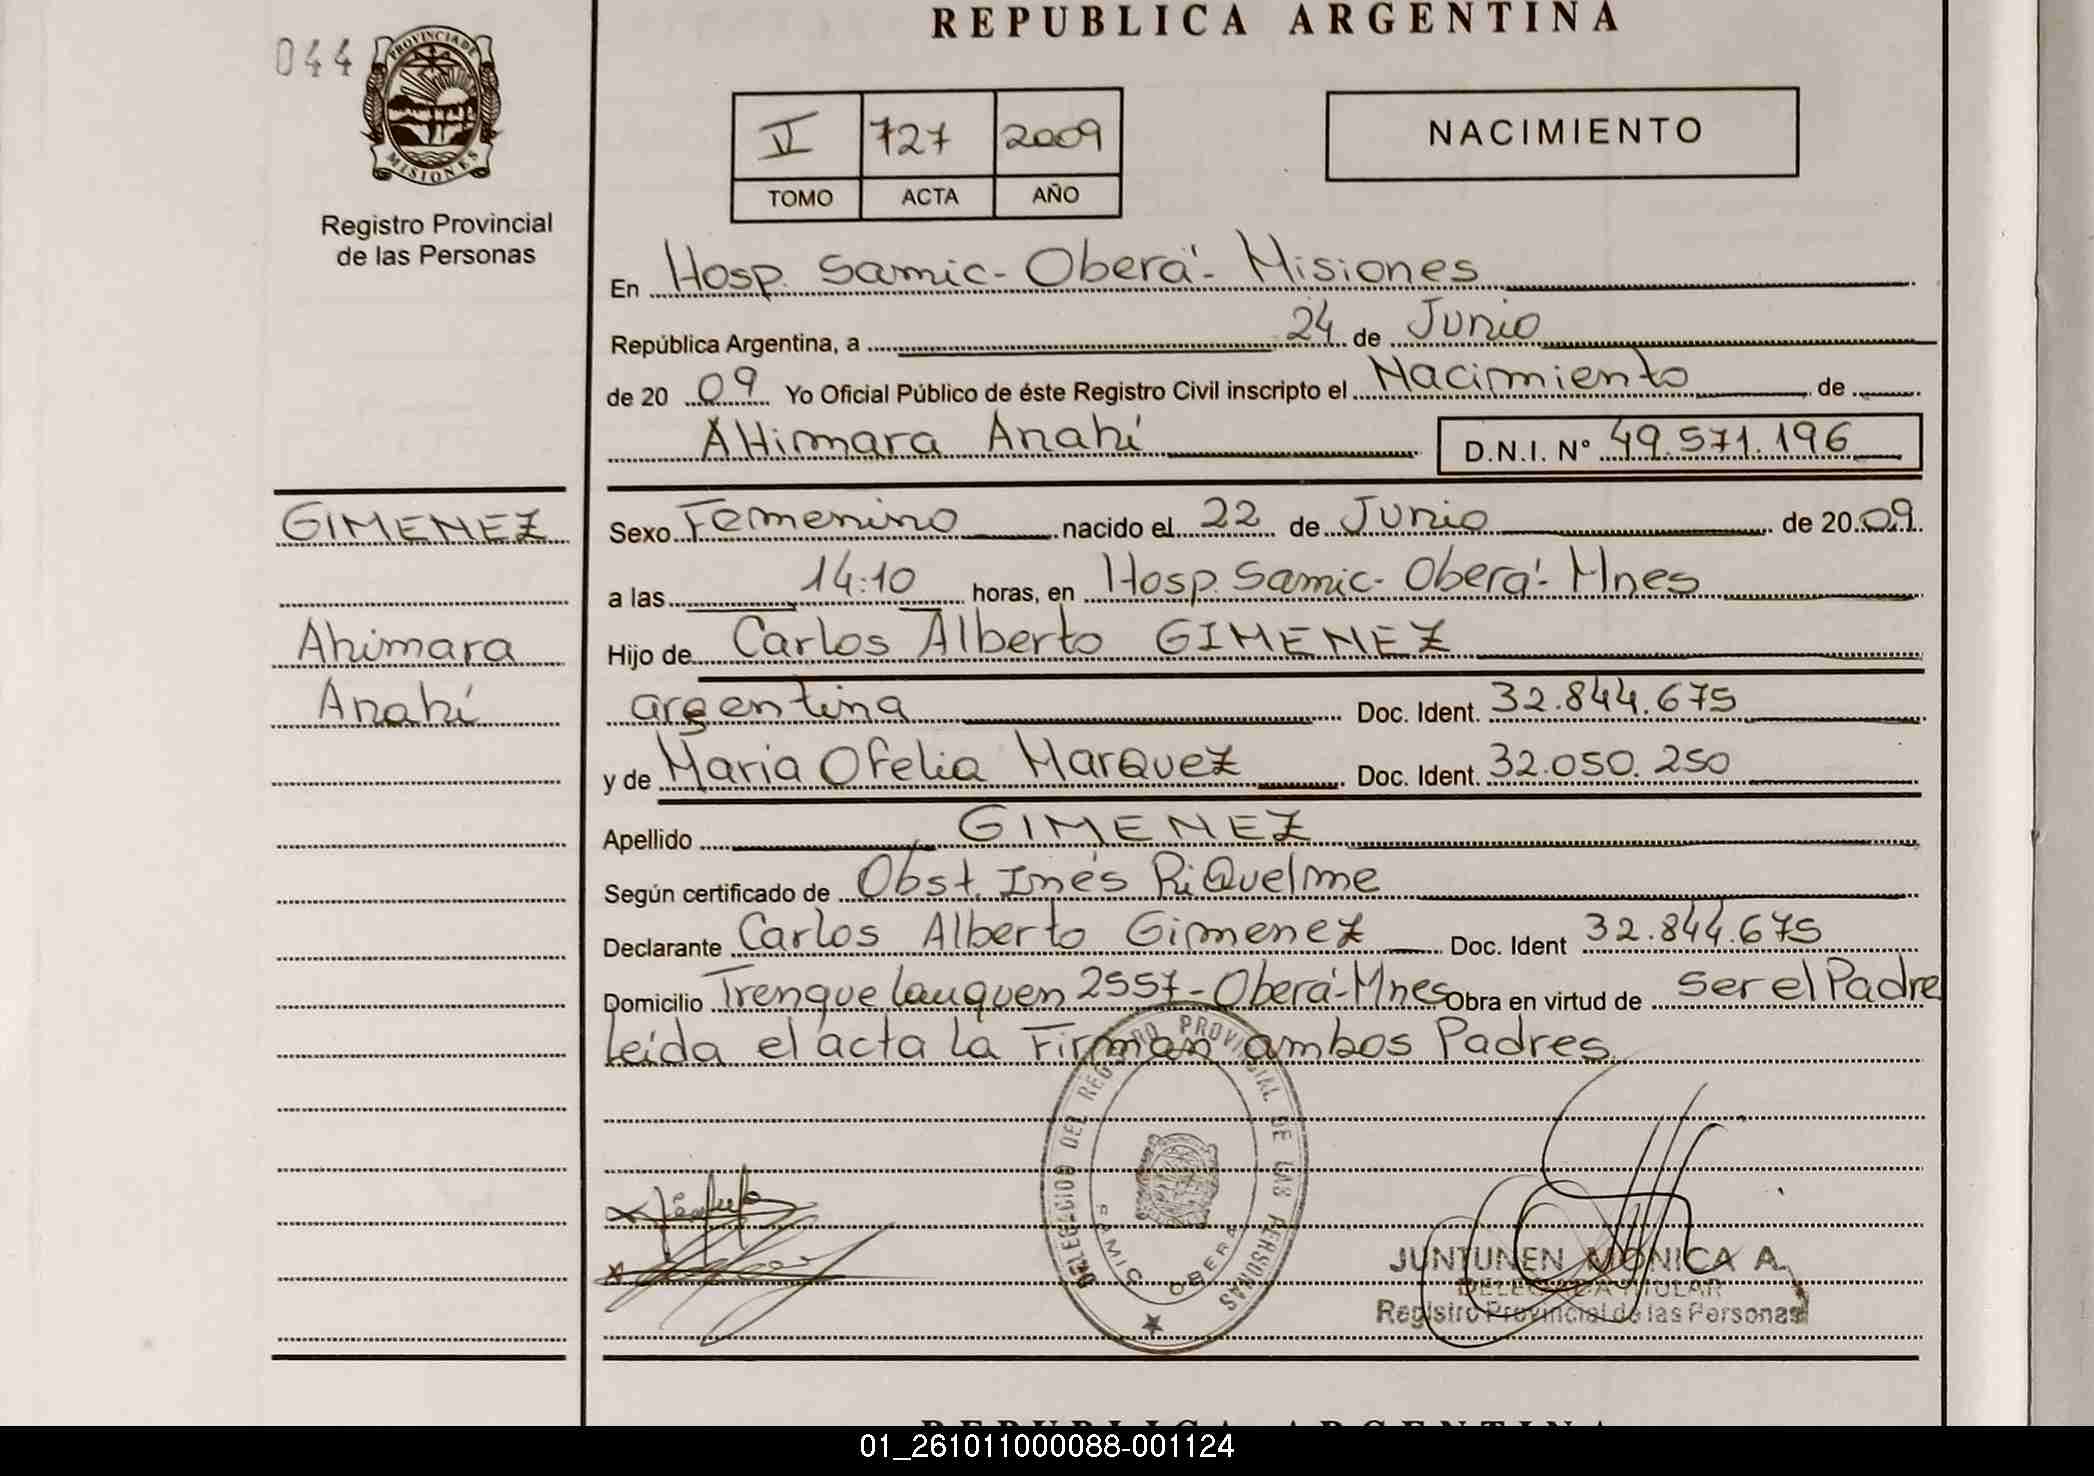 REPUBLICA ARGENTINA
044
PROVINCIA DE
MISIONES
Registro Provincial
de las Personas
V 727 2009
TOMO ACTA AÑO
NACIMIENTO
En Hosp. Samic - Oberá - Misiones
República Argentina, a 24 de Junio
de 20 09 Yo Oficial Público de éste Registro Civil inscripto el Nacimiento de
AHimara Anahí D.N.I. Nº 49.571.196
GIMENEZ
Ahimara
Anahí
Sexo Femenino nacido el 22 de Junio de 20 09
a las 14:10 horas, en Hosp. Samic - Oberá - Mnes
Hijo de Carlos Alberto GIMENEZ
argentina Doc. Ident. 32.844.675
y de Maria Ofelia Marquez Doc. Ident. 32.050.250
Apellido GIMENEZ
Según certificado de Obst. Inés RiQuelme
Declarante Carlos Alberto Gimenez Doc. Ident 32.844.675
Domicilio Trenque lauquen 2557 - Oberá - Mnes Obra en virtud de ser el Padre
Leida el acta la Firman ambos Padres
DELEGACION DEL REGISTRO PROVINCIAL DE LAS PERSONAS
SAMIC OBERA
JUNTUNEN MONICA A.
DELEGADA TITULAR
Registro Provincial de las Personas
REPUBLICA ARGENTINA
01_261011000088-001124